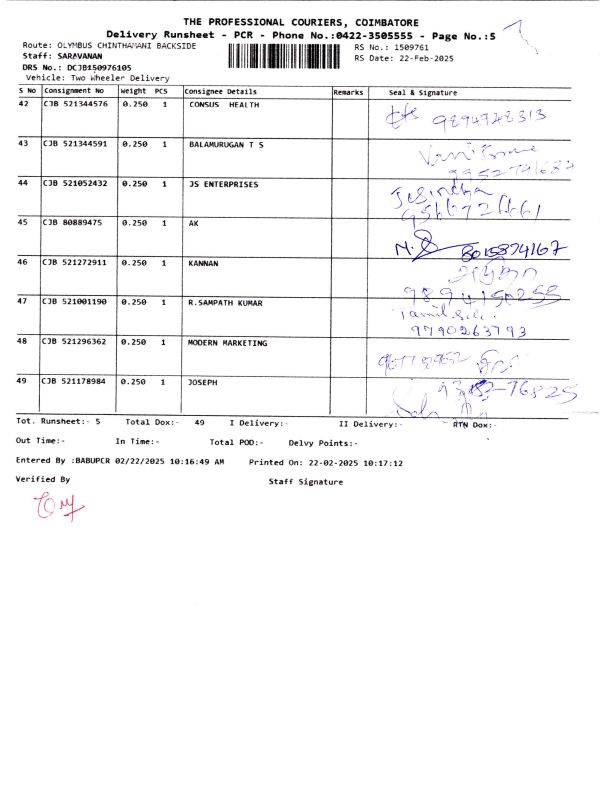 THE PROFESSIONAL COURIERS, COIMBATORE
Delivery Runsheet - PCR - Phone No.:0422-3505555 - Page No.:5
Route: OLYMBUS CHINTHAMANI BACKSIDE
RS No.: 1509761
Staff: SARAVANAN
RS Date: 22-Feb-2025
DRS No.: DCJB150976105
Vehicle: Two Wheeler Delivery
S No Consignment No Weight PCS Consignee Details Remarks Seal & Signature
42 CJB 521344576 0.250 1 CONSUS HEALTH 9894728313
43 CJB 521344591 0.250 1 BALAMURUGAN T S
44 CJB 521052432 0.250 1 JS ENTERPRISES
45 CJB 80889475 0.250 1 AK 8015874167
46 CJB 521272911 0.250 1 KANNAN
9894150255
47 CJB 521001190 0.250 1 R.SAMPATH KUMAR
9790263793
48 CJB 521296362 0.250 1 MODERN MARKETING
49 CJB 521178984 0.250 1 JOSEPH
Tot. Runsheet:- 5 Total Dox:- 49 I Delivery:- II Delivery:- RTN Dox:-
Out Time:- In Time:- Total POD:- Delvy Points:-
Entered By :BABUPCR 02/22/2025 10:16:49 AM Printed On: 22-02-2025 10:17:12
Verified By Staff Signature